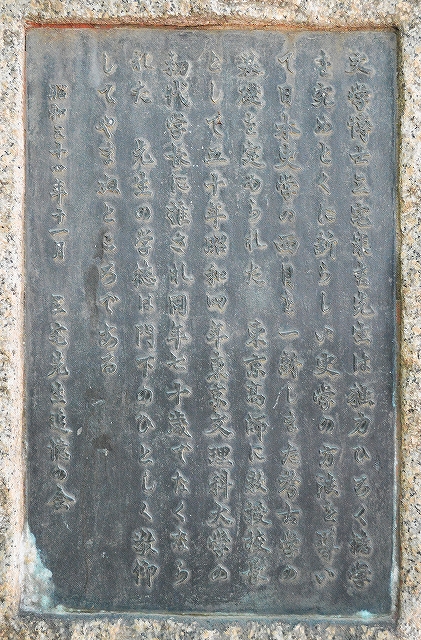 文学博士三宅米吉先生は獨力ひろく諸学
を究めとくに新らしい史学の方法を用い
て日本史学の面目を一新しまた考古学の
基礎を定められた 東京高師に教授校長
として五十年昭和四年東京文理科大学の
初代学長に推され同年七十歳でたくなら
れた 先生の学徳は門下のひとしく敬仰
してやまぬところである
昭和三十四年十一月 三宅先生追憶の会